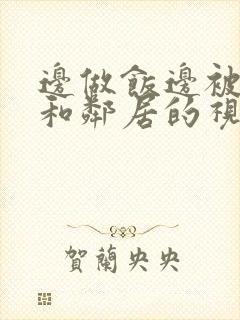 邊做飯邊被
和鄰居的視
賀蘭央央